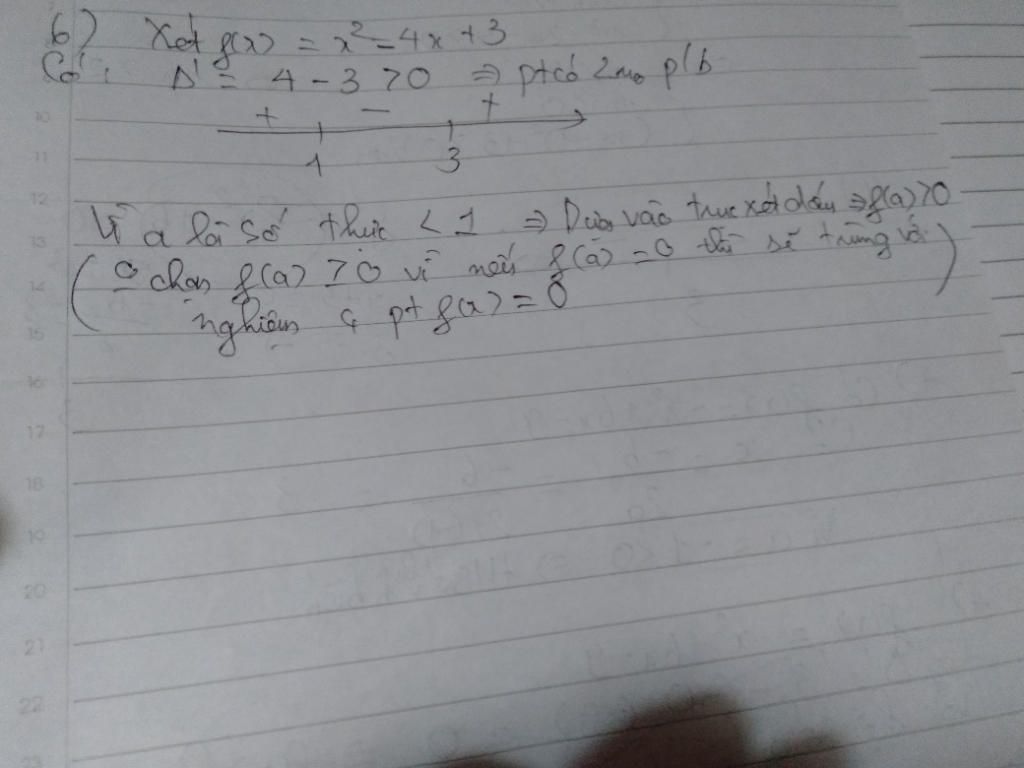 6) Xét f(x) = x² - 4x + 3
Có: Δ' = 4 - 3 > 0 ⇒ pt có 2 no p/b
+ - +
1 3
Vì a là số thực < 1 ⇒ Dựa vào trục xét dấu ⇒ f(a) > 0
(o chọn f(a) ≥ 0 vì nếu f(a) = 0 thì sẽ trùng với
nghiệm ç pt f(x) = 0)
10
11
12
13
14
15
16
17
18
19
20
21
22
23